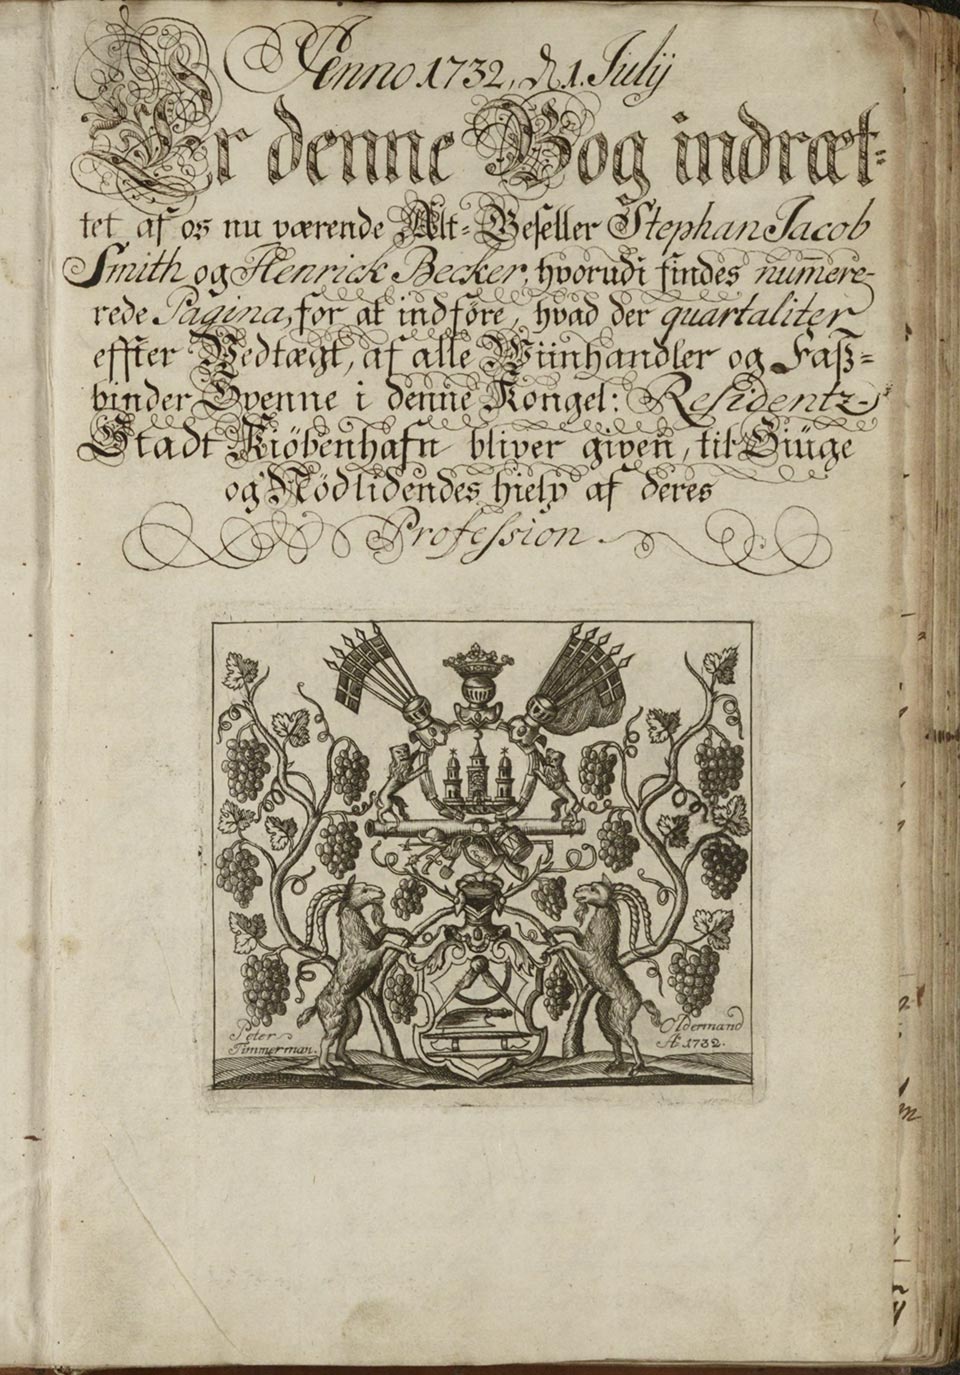 Anno 1732, d. 1. Julij
Er denne Bog indræt-
tet af os nu værende Alt-Geseller Stephan Jacob
Smith og Henrick Becker, hvorudi findes num̄ere-
rede Pagina, for at indføre, hvad der quartaliter
effter Vedtægt, af alle Wiinhandler og Faß-
binder Svenne i denne Kongel: Residentz-
Stadt Kiöbenhafn bliver given, til Siüge
og Nödlidendes hielp af deres
Profession.
Peter
Timmerman.
Oldermand
Aº 1732.